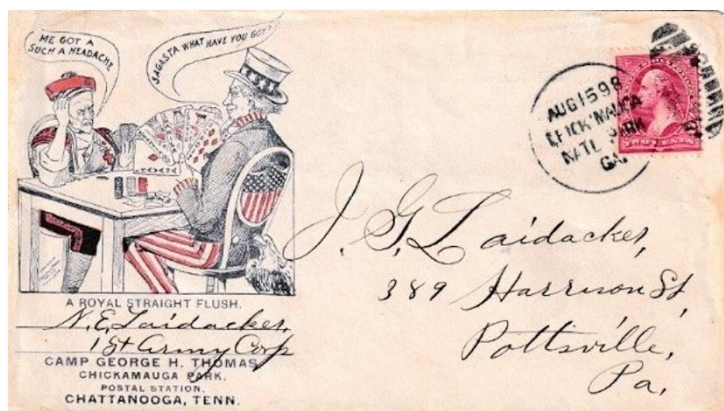 ME GOT A
SUCH A HEADACHE
SAGASTA WHAT HAVE YOU GOT?
A ROYAL STRAIGHT FLUSH.
N. E. Laidacker,
1st Army Corp
CAMP GEORGE H. THOMAS
CHICKAMAUGA PARK.
POSTAL STATION.
CHATTANOOGA, TENN.
AUG 15 98
CHICK'MAUGA
NAT'L PARK
GA.
TWO CENTS
J. G. Laidacker,
389 Harrison St,
Pottsville,
Pa,